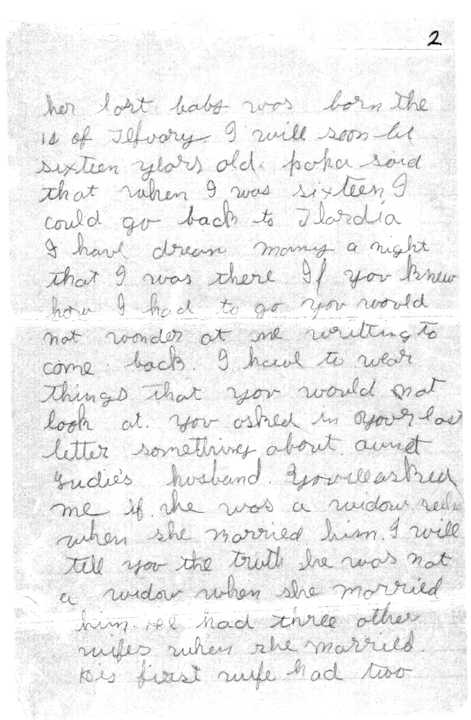 2
her last babs was born the
18 of Tefuary. I will soon be
sixteen years old. papa said
that when I was sixteen I
could go back to Flardia
I have dream many a night
that I was there If you knew
how I had to go you would
not wonder at me writting to
come back. I have to wear
things that you would not
look at. you asked in your last
letter something about aunt
Judie's husband. You
me if she was a widow
when she married him. I will
tell you the truth he was not
a widow when she married
him. He had three other
wifes when she married.
His first wife had two